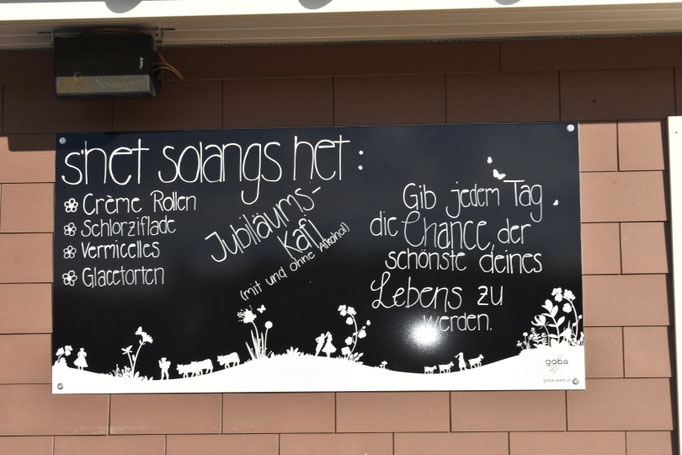 s'het solangs het :
Crème Rollen
Schlorziflade
Vermicelles
Glacetorten
Jubiläums-
Kafi
(mit und ohne Alkohol)
Gib jedem Tag
die Chance, der
schönste deines
Lebens zu
werden.
goba